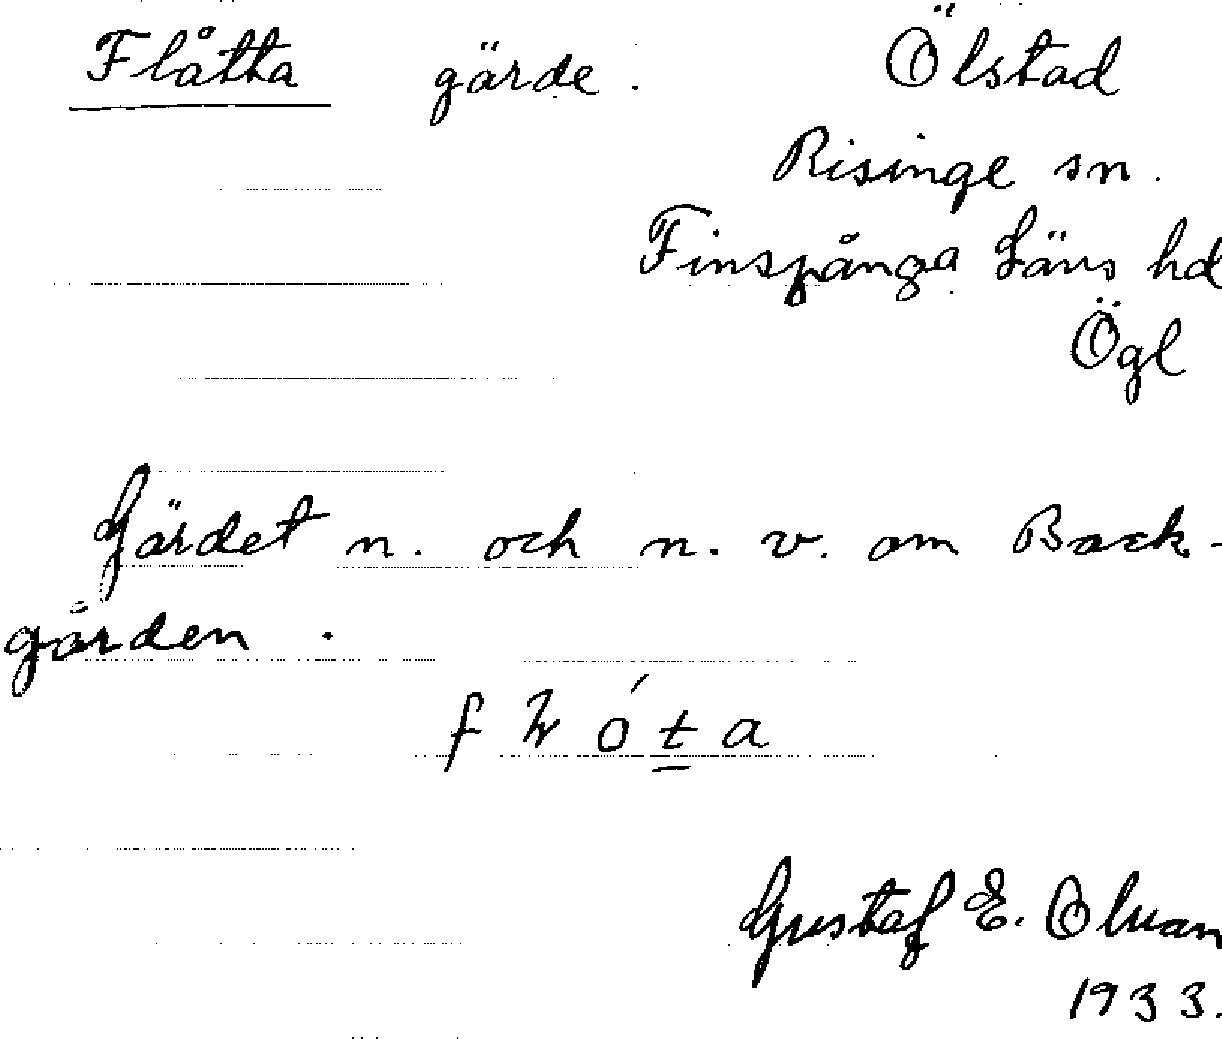 Flåtta gärde. Ölstad
Risinge sn.
Finspånga Läns hd
Ögl
Gärdet n. och n. v. om Back-
gården.
Gustaf E. Olman
1933.